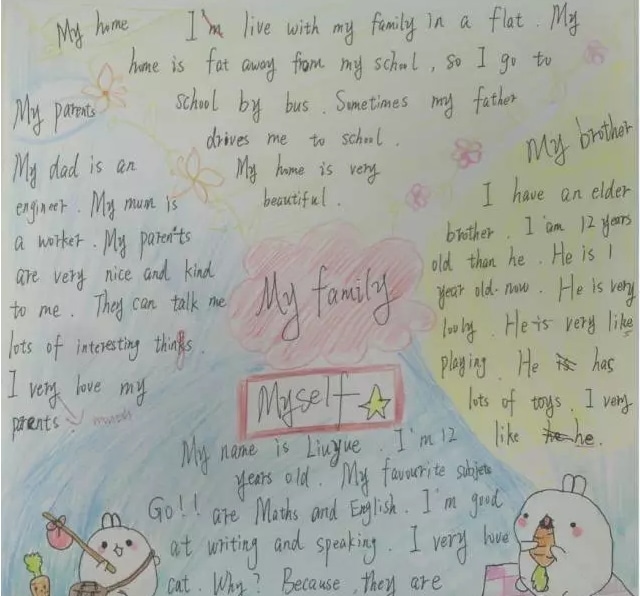 My home
I'm live with my family in a flat. My
home is fat away from my school, so I go to
school by bus. Sometimes my father
drives me to school.
My home is very
beautiful.
My parents
My dad is an
engineer. My mum is
a worker. My parents
are very nice and kind
to me. They can talk me
lots of interesting things.
I very love my
parents.
My family
My brother
I have an elder
brother. I am 12 years
old than he. He is 1
year old now. He is very
lovly. He is very like
playing. He is has
lots of toys. I very
like he he.
Myself
My name is Liuyue. I'm 12
years old. My favourite subjets
Go!! are Maths and English. I'm good
at writing and speaking. I very love
cat. Why? Because, they are